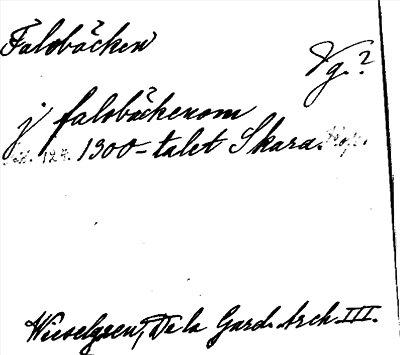 Falobäcken
Vg.?
j falobäckenom
1300-talet Skara
Wieselgren, De la Gard. Arch. III.